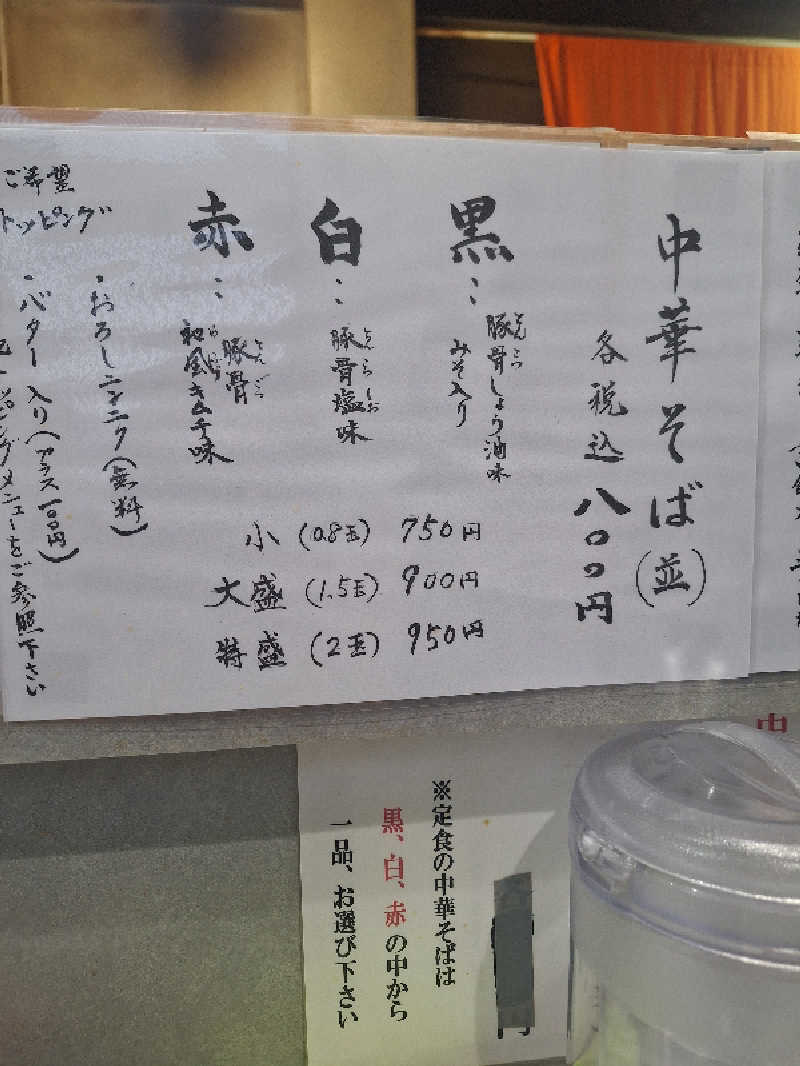 中華そば(並)
各税込 八〇〇円
黒…
豚骨しょう油味
とんこつ
みそ入り
白…
豚骨塩味
赤…
豚骨
和風キムチ味
小 (0.8玉) 750円
大盛 (1.5玉) 900円
特盛 (2玉) 950円
ご希望
トッピング
・おろしニンニク(無料)
・バター入り(プラス一〇〇円)
メニューをご参照下さい
※定食の中華そばは
黒、白、赤の中から
一品、お選び下さい
中